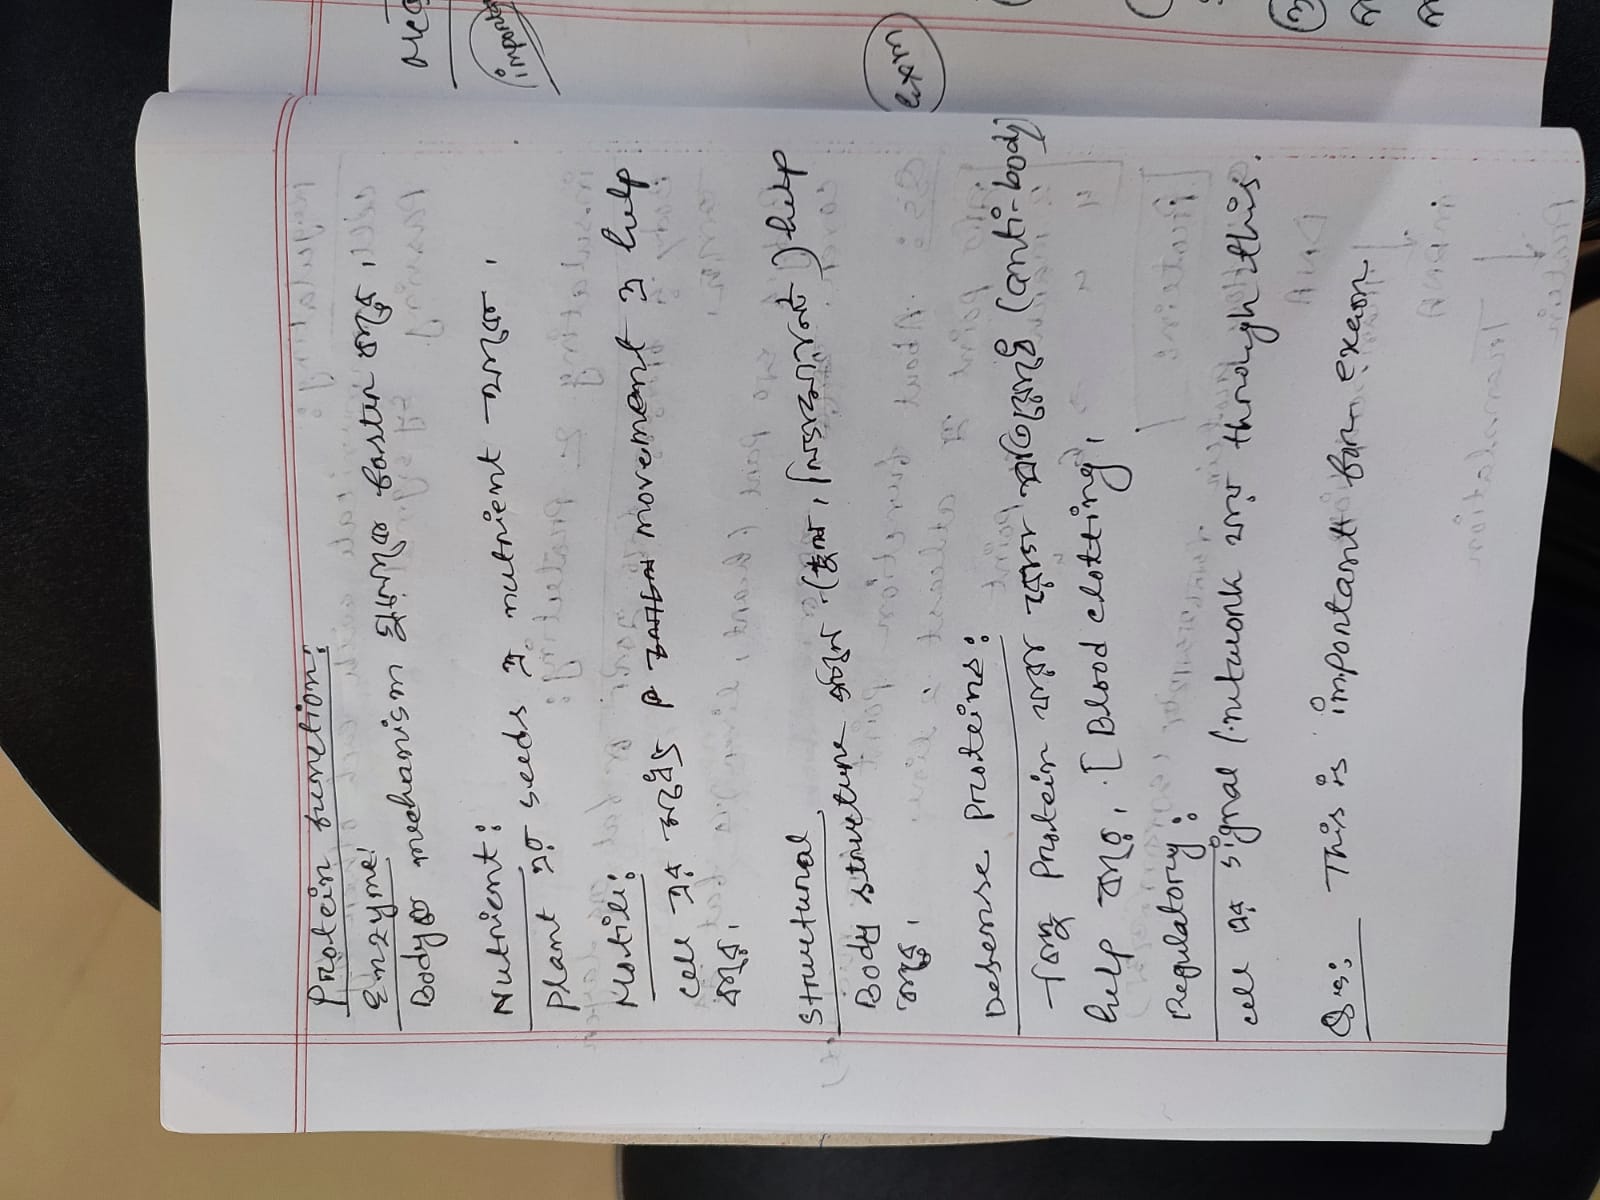 Protein function:
Enzyme:
Body র mechanism গুলোকে faster করে।
Nutrient:
Plant এর seeds এ nutrient থাকে।
Motile:
cell এর মধ্যে movement এ help
করে।
Structural
Body structure গঠনে (চুল, লিগামেন্ট) help
করে।
Defense Proteins:
কিছু Protein যারা রোগ প্রতিরোধে (anti-body)
help করে। [Blood clotting,
Regulatory:
cell এর signal / network যায় through this.
Qs: This is important for exam
important
exam